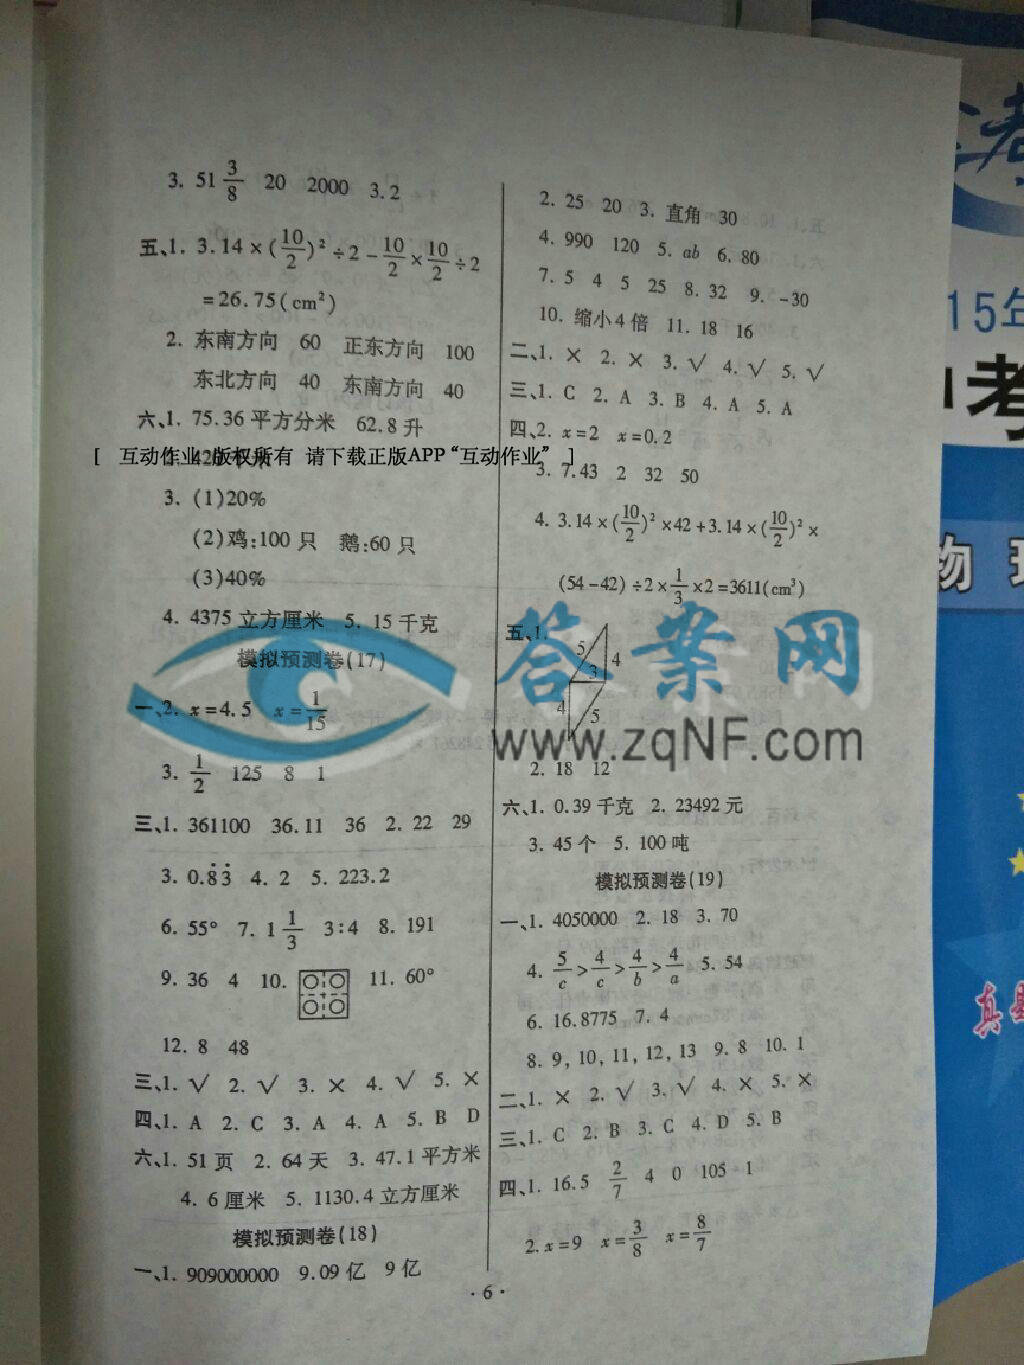 3. 51 3/8 20 2000 3.2
五、1. 3.14×(10/2)²÷2-10/2×10/2÷2
=26.75(cm²)
2. 东南方向 60 正东方向 100
东北方向 40 东南方向 40
六、1. 75.36 平方分米 62.8 升
[ 互动作业 版权所有 请下载正版APP“互动作业” ]
3. (1)20%
(2)鸡:100 只 鹅:60 只
(3)40%
4. 4375 立方厘米 5. 15 千克
模拟预测卷(17)
一、2. x=4.5 x=1/15
3. 1/2 125 8 1
三、1. 361100 36.11 36 2. 22 29
3. 0.8̇3̇ 4. 2 5. 223.2
6. 55° 7. 1 1/3 3:4 8. 191
9. 36 4 10. 11. 60°
12. 8 48
三、1. √ 2. √ 3. × 4. √ 5. ×
四、1. A 2. C 3. A 4. A 5. B D
六、1. 51 页 2. 64 天 3. 47.1 平方米
4. 6 厘米 5. 1130.4 立方厘米
模拟预测卷(18)
一、1. 909000000 9.09 亿 9 亿
2. 25 20 3. 直角 30
4. 990 120 5. ab 6. 80
7. 5 4 5 25 8. 32 9. -30
10. 缩小4 倍 11. 18 16
二、1. × 2. × 3. √ 4. √ 5. √
三、1. C 2. A 3. B 4. A 5. A
四、2. x=2 x=0.2
3. 7.43 2 32 50
4. 3.14×(10/2)²×42+3.14×(10/2)²×
(54-42)÷2×1/3×2=3611(cm³)
五、1.
5 3 4
4 5
2. 18 12
六、1. 0.39 千克 2. 23492 元
3. 45 个 5. 100 吨
模拟预测卷(19)
一、1. 4050000 2. 18 3. 70
4. 5/c>4/c>4/b>4/a 5. 54
6. 16.8775 7. 4
8. 9, 10, 11, 12, 13 9. 8 10. 1
二、1. × 2. √ 3. √ 4. × 5. ×
三、1. C 2. B 3. C 4. D 5. B
四、1. 16.5 2/7 4 0 105 1
2. x=9 x=3/8 x=8/7
·6·
答案网
www.zqNF.com
15年
考
物
真